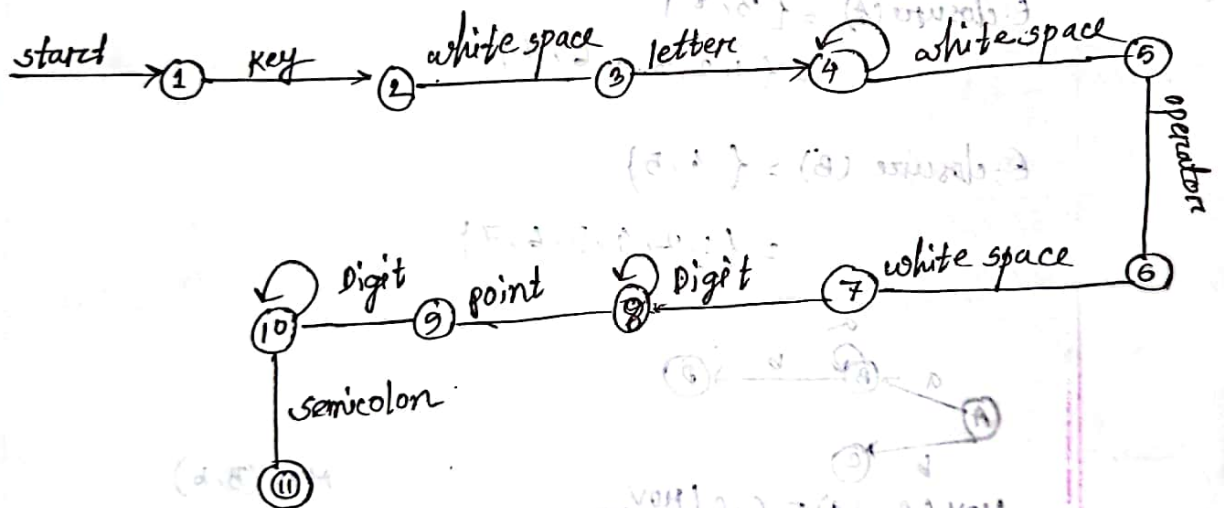 start 1 key 2 white space 3 letter 4 white space 5
operator
6 white space 7 Digit 8 point 9 Digit 10
semicolon
11
A